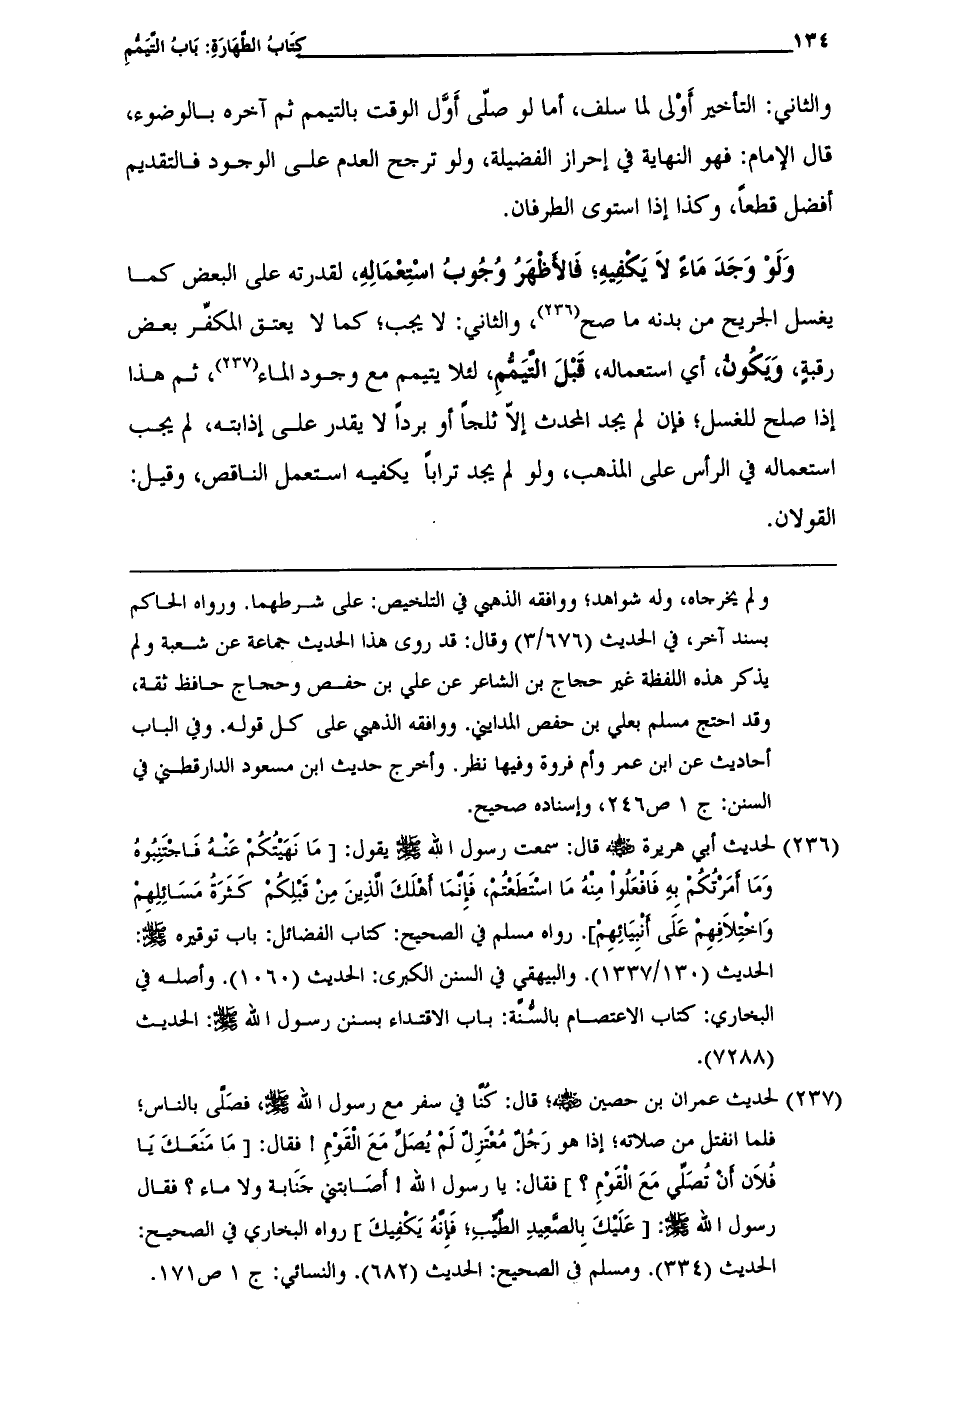 ١٣٤ كِتَابُ الطَّهَارَةِ: بَابُ التَّيَمُّمِ
والثاني: التأخير أَوْلى لما سلف، أما لو صلّى أَوَّل الوقت بالتيمم ثم آخره بالوضوء،
قال الإمام: فهو النهاية في إحراز الفضيلة، ولو ترجح العدم على الوجود فالتقديم
أفضل قطعاً، وكذا إذا استوى الطرفان.
وَلَوْ وَجَدَ مَاءً لاَ يَكْفِيهِ؛ فَالأَظْهَرُ وُجُوبُ اسْتِعْمَالِهِ، لقدرته على البعض كما
يغسل الجريح من بدنه ما صح(٢٣٦)، والثاني: لا يجب؛ كما لا يعتق المكفِّر بعض
رقبةٍ، وَيَكُونُ، أي استعماله، قَبْلَ التَّيَمُّمِ، لئلا يتيمم مع وجود الماء(٢٣٧)، ثم هذا
إذا صلح للغسل؛ فإن لم يجد المحدث إلاّ ثلجاً أو برداً لا يقدر على إذابته، لم يجب
استعماله في الرأس على المذهب، ولو لم يجد تراباً يكفيه استعمل الناقص، وقيل:
القولان.
ولم يخرجاه، وله شواهد؛ ووافقه الذهبي في التلخيص: على شرطهما. ورواه الحاكم
بسند آخر، في الحديث (٣/٦٧٦) وقال: قد روى هذا الحديث جماعة عن شعبة ولم
يذكر هذه اللفظة غير حجاج بن الشاعر عن علي بن حفص وحجاج حافظ ثقة،
وقد احتج مسلم بعلي بن حفص المدايني. ووافقه الذهبي على كل قوله. وفي الباب
أحاديث عن ابن عمر وأم فروة وفيها نظر. وأخرج حديث ابن مسعود الدارقطني في
السنن: ج ١ ص٢٤٦، وإسناده صحيح.
(٢٣٦) لحديث أبي هريرة ﷺ قال: سمعت رسول الله ﷺ يقول: [ مَا نَهَيْتُكُمْ عَنْهُ فَاجْتَنِبُوهُ
وَمَا أَمَرْتُكُمْ بِهِ فَافْعَلُواْ مِنْهُ مَا اسْتَطَعْتُمْ، فَإِنَّمَا أَهْلَكَ الَّذِينَ مِنْ قَبْلِكُمْ كَثَرَةُ مَسَائِلِهِمْ
وَاخْتِلاَفِهِمْ عَلَى أَنْبِيَائِهِمْ]. رواه مسلم في الصحيح: كتاب الفضائل: باب توقيره ﷺ:
الحديث (١٣٣٧/١٣٠). والبيهقي في السنن الكبرى: الحديث (١٠٦٠). وأصله في
البخاري: كتاب الاعتصام بالسُّنَّة: باب الاقتداء بسنن رسول الله ﷺ: الحديث
(٧٢٨٨).
(٢٣٧) لحديث عمران بن حصين ﷺ؛ قال: كُنَّا في سفر مع رسول الله ﷺ، فصَلَّى بالناس؛
فلما انفتل من صلاته؛ إذا هو رَجُلٌ مُعْتَزِلٌ لَمْ يُصَلِّ مَعَ الْقَوْمِ ! فقال: [ مَا مَنَعَكَ يَا
فُلاَن أَنْ تُصَلِّي مَعَ الْقَوْمِ ؟ ] فقال: يا رسول الله ! أَصَابتني جَنَابة ولا ماء ؟ فقال
رسول الله ﷺ: [ عَلَيْكَ بِالصَّعِيدِ الطَّيِّبِ؛ فَإِنَّهُ يَكْفِيكَ ] رواه البخاري في الصحيح:
الحديث (٣٣٤). ومسلم في الصحيح: الحديث (٦٨٢). والنسائي: ج ١ ص١٧١.